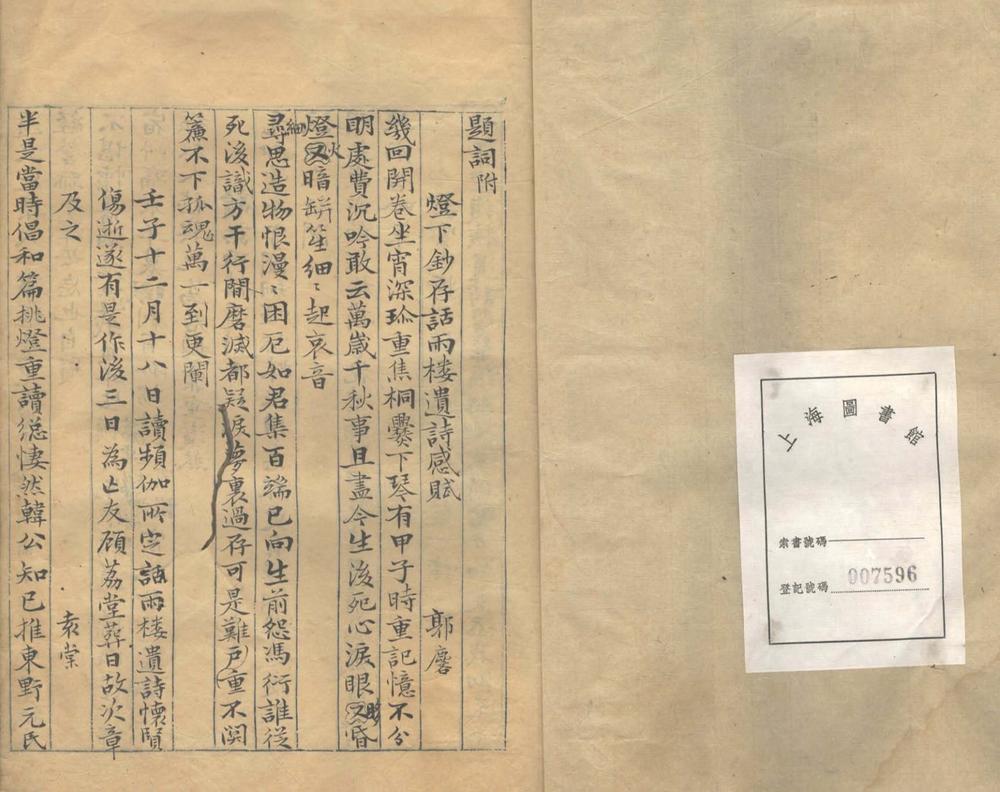 上海圖書館
索書號碼
登記號碼 007596
題詞附
燈下鈔存話雨楼遺詩感賦 郭麐
幾回開卷坐宵深珎重焦桐爨下琴有甲子時重記憶不分
明處費沉吟敢云萬歲千秋事且盡今生後死心淚眼昏
燈火暗缾笙細〻起哀音
尋思造物恨漫〻困厄如君集百端已向生前怨馮衍誰從
死後識方干行間磨滅都疑淚夢裏過存可是難戶重不関
簾不下孤魂萬一到更闌
壬子十二月十八日讀頻伽所定話雨楼遺詩懷賢
傷逝遂有是作後三日為亡友顧荔堂葬日故次章
及之 袁棠
半是當時倡和篇挑燈重讀總悽然韓公知已推東野元氏